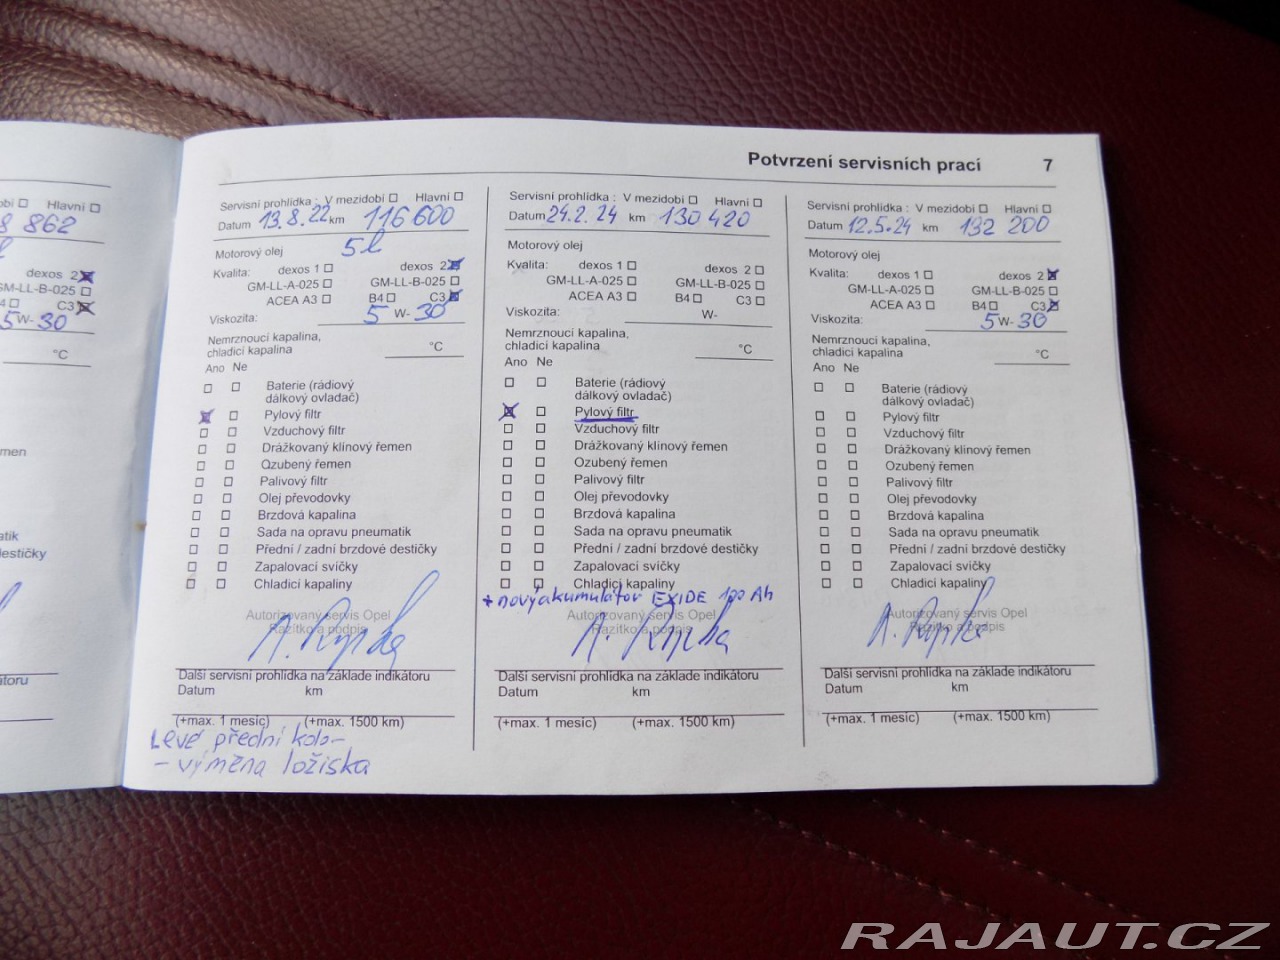 Potvrzení servisních prací 7
obí ☐ Hlavní ☐
8 862
dexos 2 ☒
GM-LL-B-025 ☐
B4 ☐ C3 ☒
5 W- 30
°C
řmen
atik
destičky
átoru
Servisní prohlídka : V mezidobí ☐ Hlavní ☐
Datum 13.8.22 km 116 600
Motorový olej 5l
Kvalita: dexos 1 ☐ dexos 2 ☒
GM-LL-A-025 ☐ GM-LL-B-025 ☐
ACEA A3 ☐ B4 ☐ C3 ☒
Viskozita: 5 W- 30
Nemrznoucí kapalina,
chladicí kapalina °C
Ano Ne
☐ ☐ Baterie (rádiový
dálkový ovladač)
☒ ☐ Pylový filtr
☐ ☐ Vzduchový filtr
☐ ☐ Drážkovaný klínový řemen
☐ ☐ Ozubený řemen
☐ ☐ Palivový filtr
☐ ☐ Olej převodovky
☐ ☐ Brzdová kapalina
☐ ☐ Sada na opravu pneumatik
☐ ☐ Přední / zadní brzdové destičky
☐ ☐ Zapalovací svíčky
☐ ☐ Chladicí kapaliny
Autorizovaný servis Opel
Razítko a podpis
Další servisní prohlídka na základe indikátoru
Datum km
(+max. 1 mesíc) (+max. 1500 km)
Levé přední kolo-
- výměna ložiska
Servisní prohlídka : V mezidobí ☐ Hlavní ☐
Datum 24.2.24 km 130 420
Motorový olej
Kvalita: dexos 1 ☐ dexos 2 ☐
GM-LL-A-025 ☐ GM-LL-B-025 ☐
ACEA A3 ☐ B4 ☐ C3 ☐
Viskozita: W-
Nemrznoucí kapalina,
chladicí kapalina °C
Ano Ne
☐ ☐ Baterie (rádiový
dálkový ovladač)
☒ ☐ Pylový filtr
☐ ☐ Vzduchový filtr
☐ ☐ Drážkovaný klínový řemen
☐ ☐ Ozubený řemen
☐ ☐ Palivový filtr
☐ ☐ Olej převodovky
☐ ☐ Brzdová kapalina
☐ ☐ Sada na opravu pneumatik
☐ ☐ Přední / zadní brzdové destičky
☐ ☐ Zapalovací svíčky
☐ ☐ Chladicí kapaliny
* nový akumulátor EXIDE 100 Ah
Autorizovaný servis Opel
Razítko a podpis
Další servisní prohlídka na základe indikátoru
Datum km
(+max. 1 mesíc) (+max. 1500 km)
Servisní prohlídka : V mezidobí ☐ Hlavní ☐
Datum 12.5.24 km 132 200
Motorový olej
Kvalita: dexos 1 ☐ dexos 2 ☒
GM-LL-A-025 ☐ GM-LL-B-025 ☐
ACEA A3 ☐ B4 ☐ C3 ☒
Viskozita: 5 W- 30
Nemrznoucí kapalina,
chladicí kapalina °C
Ano Ne
☐ ☐ Baterie (rádiový
dálkový ovladač)
☐ ☐ Pylový filtr
☐ ☐ Vzduchový filtr
☐ ☐ Drážkovaný klínový řemen
☐ ☐ Ozubený řemen
☐ ☐ Palivový filtr
☐ ☐ Olej převodovky
☐ ☐ Brzdová kapalina
☐ ☐ Sada na opravu pneumatik
☐ ☐ Přední / zadní brzdové destičky
☐ ☐ Zapalovací svíčky
☐ ☐ Chladicí kapaliny
Autorizovaný servis Opel
Razítko a podpis
Další servisní prohlídka na základe indikátoru
Datum km
(+max. 1 mesíc) (+max. 1500 km)
RAJAUT.CZ